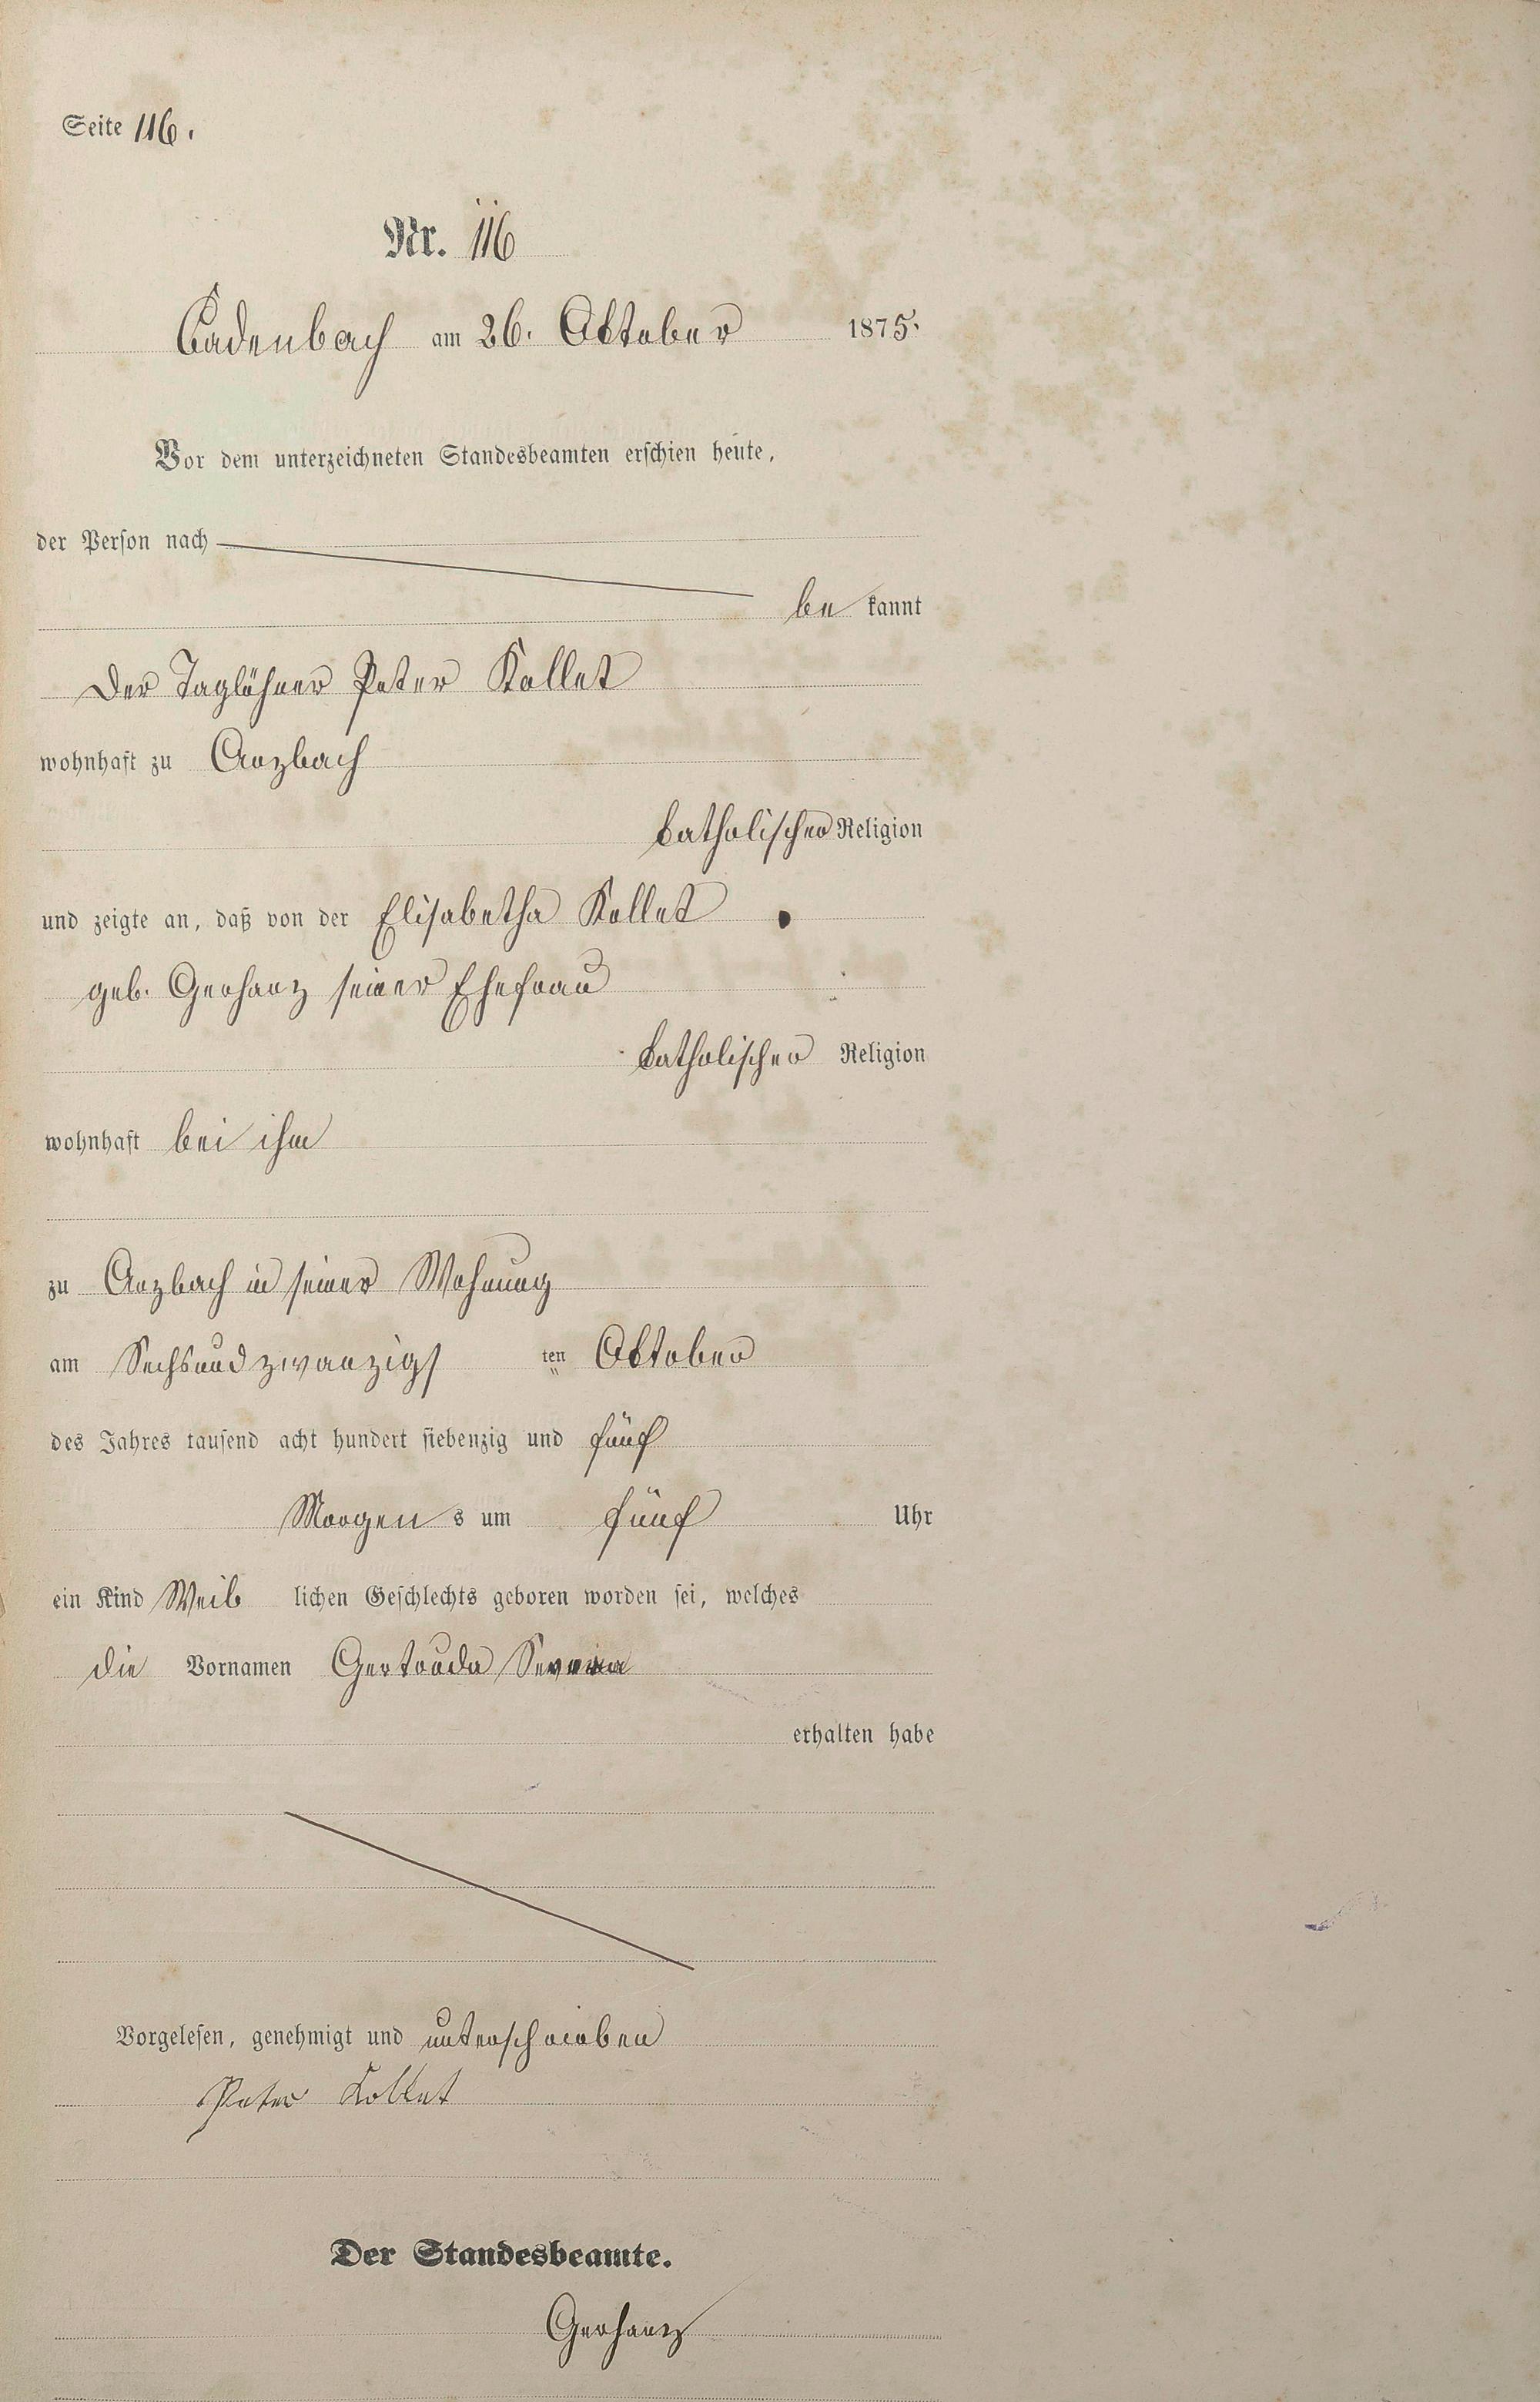 Seite 116.
Nr. 116
Cadenbach am 26. Oktober 1875.
Vor dem unterzeichneten Standesbeamten erschien heute,
der Person nach
be kannt
der Taglöhner Peter Kollet
wohnhaft zu Arzbach
katholischer Religion
und zeigte an, daß von der Elisabetha Kollet
geb. Gerharz seiner Ehefrau
katholischer Religion
wohnhaft bei ihm
zu Arzbach in seiner Wohnung
am Sechsundzwanzigs ten Oktober
des Jahres tausend acht hundert siebenzig und fünf
Morgen s um fünf Uhr
ein Kind Weib lichen Geschlechts geboren worden sei, welches
die Vornamen Gertruda
erhalten habe
Vorgelesen, genehmigt und unterschrieben
Peter Kollet
Der Standesbeamte.
Gerharz